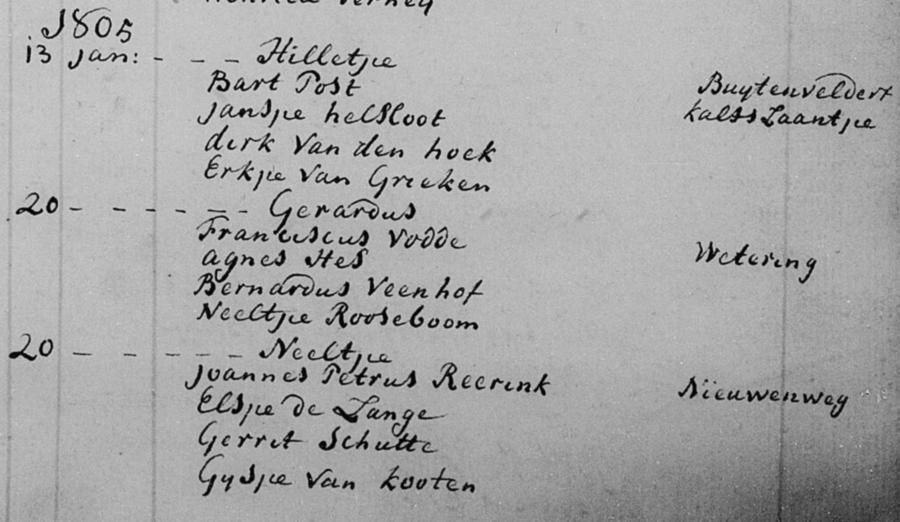 Henrica Verheij
1805
13 jan: - - - Hilletje
Bart Post Buytenveldert
Jansje helsloot kalfs Laantje
dirk Van den hoek
Erkje Van Grieken
20 - - - - - - Gerardus
Franciscus Vodde
agnes Hes Wetering
Bernardus Veenhof
Neeltje Rooseboom
20 - - - - - Neeltje
Joannes Petrus Reerink Nieuwenweg
Elsje de Lange
Gerret Schutte
Gysje Van kooten